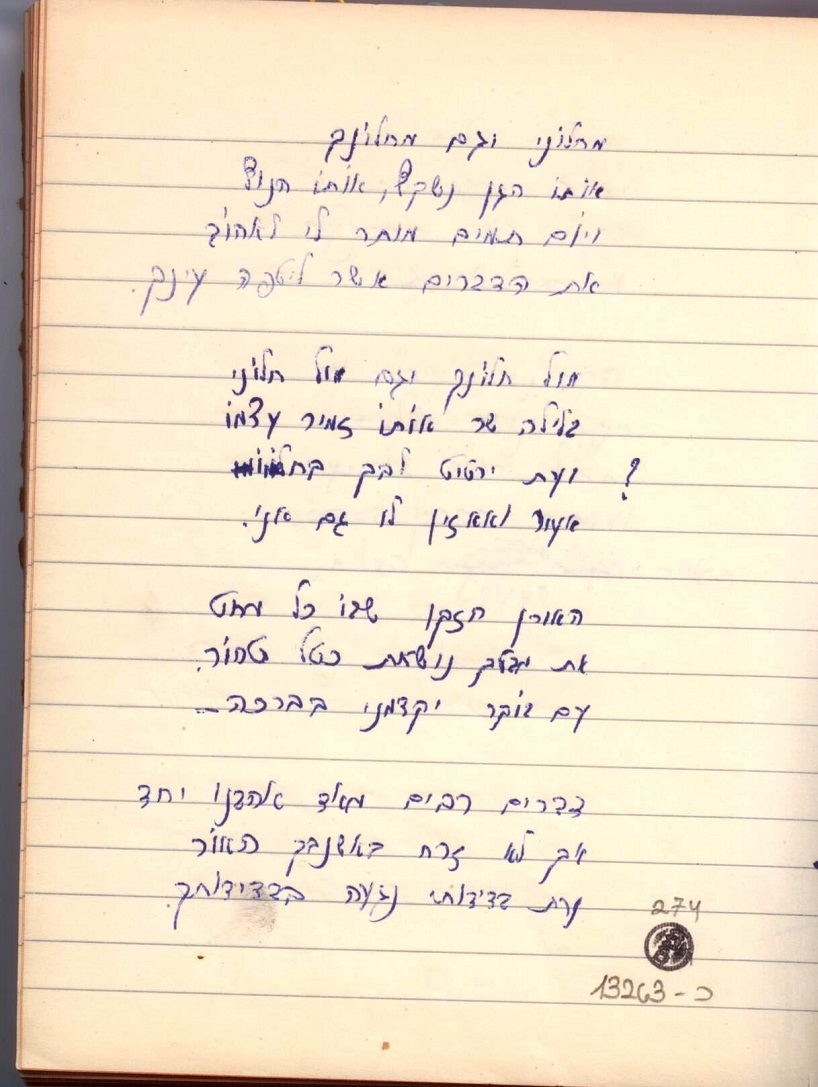 מחלוני וגם מחלונך
אותו הגן נשקף, אותו הנוף
ויום תמים מותר לי לאהוב
את הדברים אשר ליטפה עינך.
מול חלונך וגם מול חלוני
בלילה שר אותו זמיר עצמו
? ועת ירטיט לבך
אעור ואאזין לו גם אני.
האורן הזקן שבו כל מחט
את מבטך נושאת כטל טהור.
עם בוקר יקדמני בברכה –
דברים רבים מאד אהבנו יחד
אך לא זרח באשנבך האור
עת בדידותי נגעה בבדידותך.
274
13263 - כ